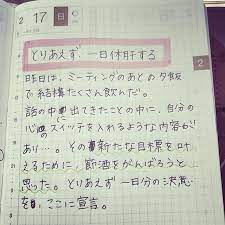 2 17 日
とりあえず 一日休肝する
昨日は、ミーティングのあとの夕飯
で結構たくさん飲んだ。
話の中で出てきたことの中に、自分の
心のスイッチを入れるような内容が
あり…。その新たな目標を叶
えるために、節酒をがんばろうと
思った。とりあえず一日分の決意
を、ここに宣言。
2